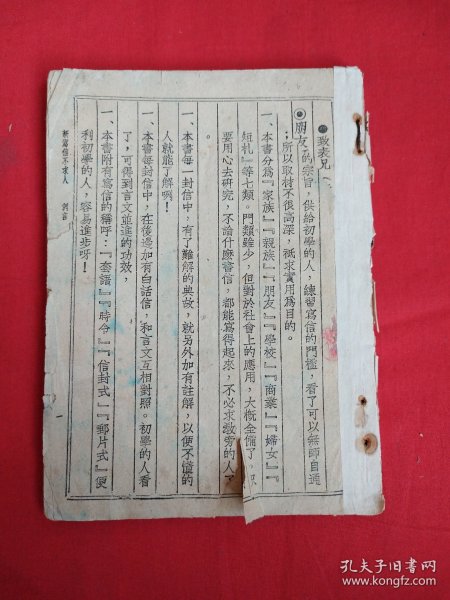 致表兄
朋友
的宗旨，供給初學的人，練習寫信的門檻，看了可以無師自通
；所以取材不很高深，祗求實用爲目的。
一、本書分爲『家族』『親族』『朋友』『學校』『商業』『婦女』『
短札』等七類。門類雖少，但對於社會上的應用，大概全備了。
要用心去研究，不論什麼書信，都能寫得起來，不必求敎旁的人了
。
一、本書每一封信中，有了難解的典故，就另外加有註解，以便不懂的
人就能了解啊！
一、本書每封信中，在後邊加有白話信，和言文互相對照。初學的人看
了，可得到言文並進的功效，
一、本書附有寫信的稱呼：『套語』『時令』『信封式』『郵片式』便
利初學的人，容易進步呀！
新寫信不求人　例言
一
孔夫子旧书网
www.kongfz.com